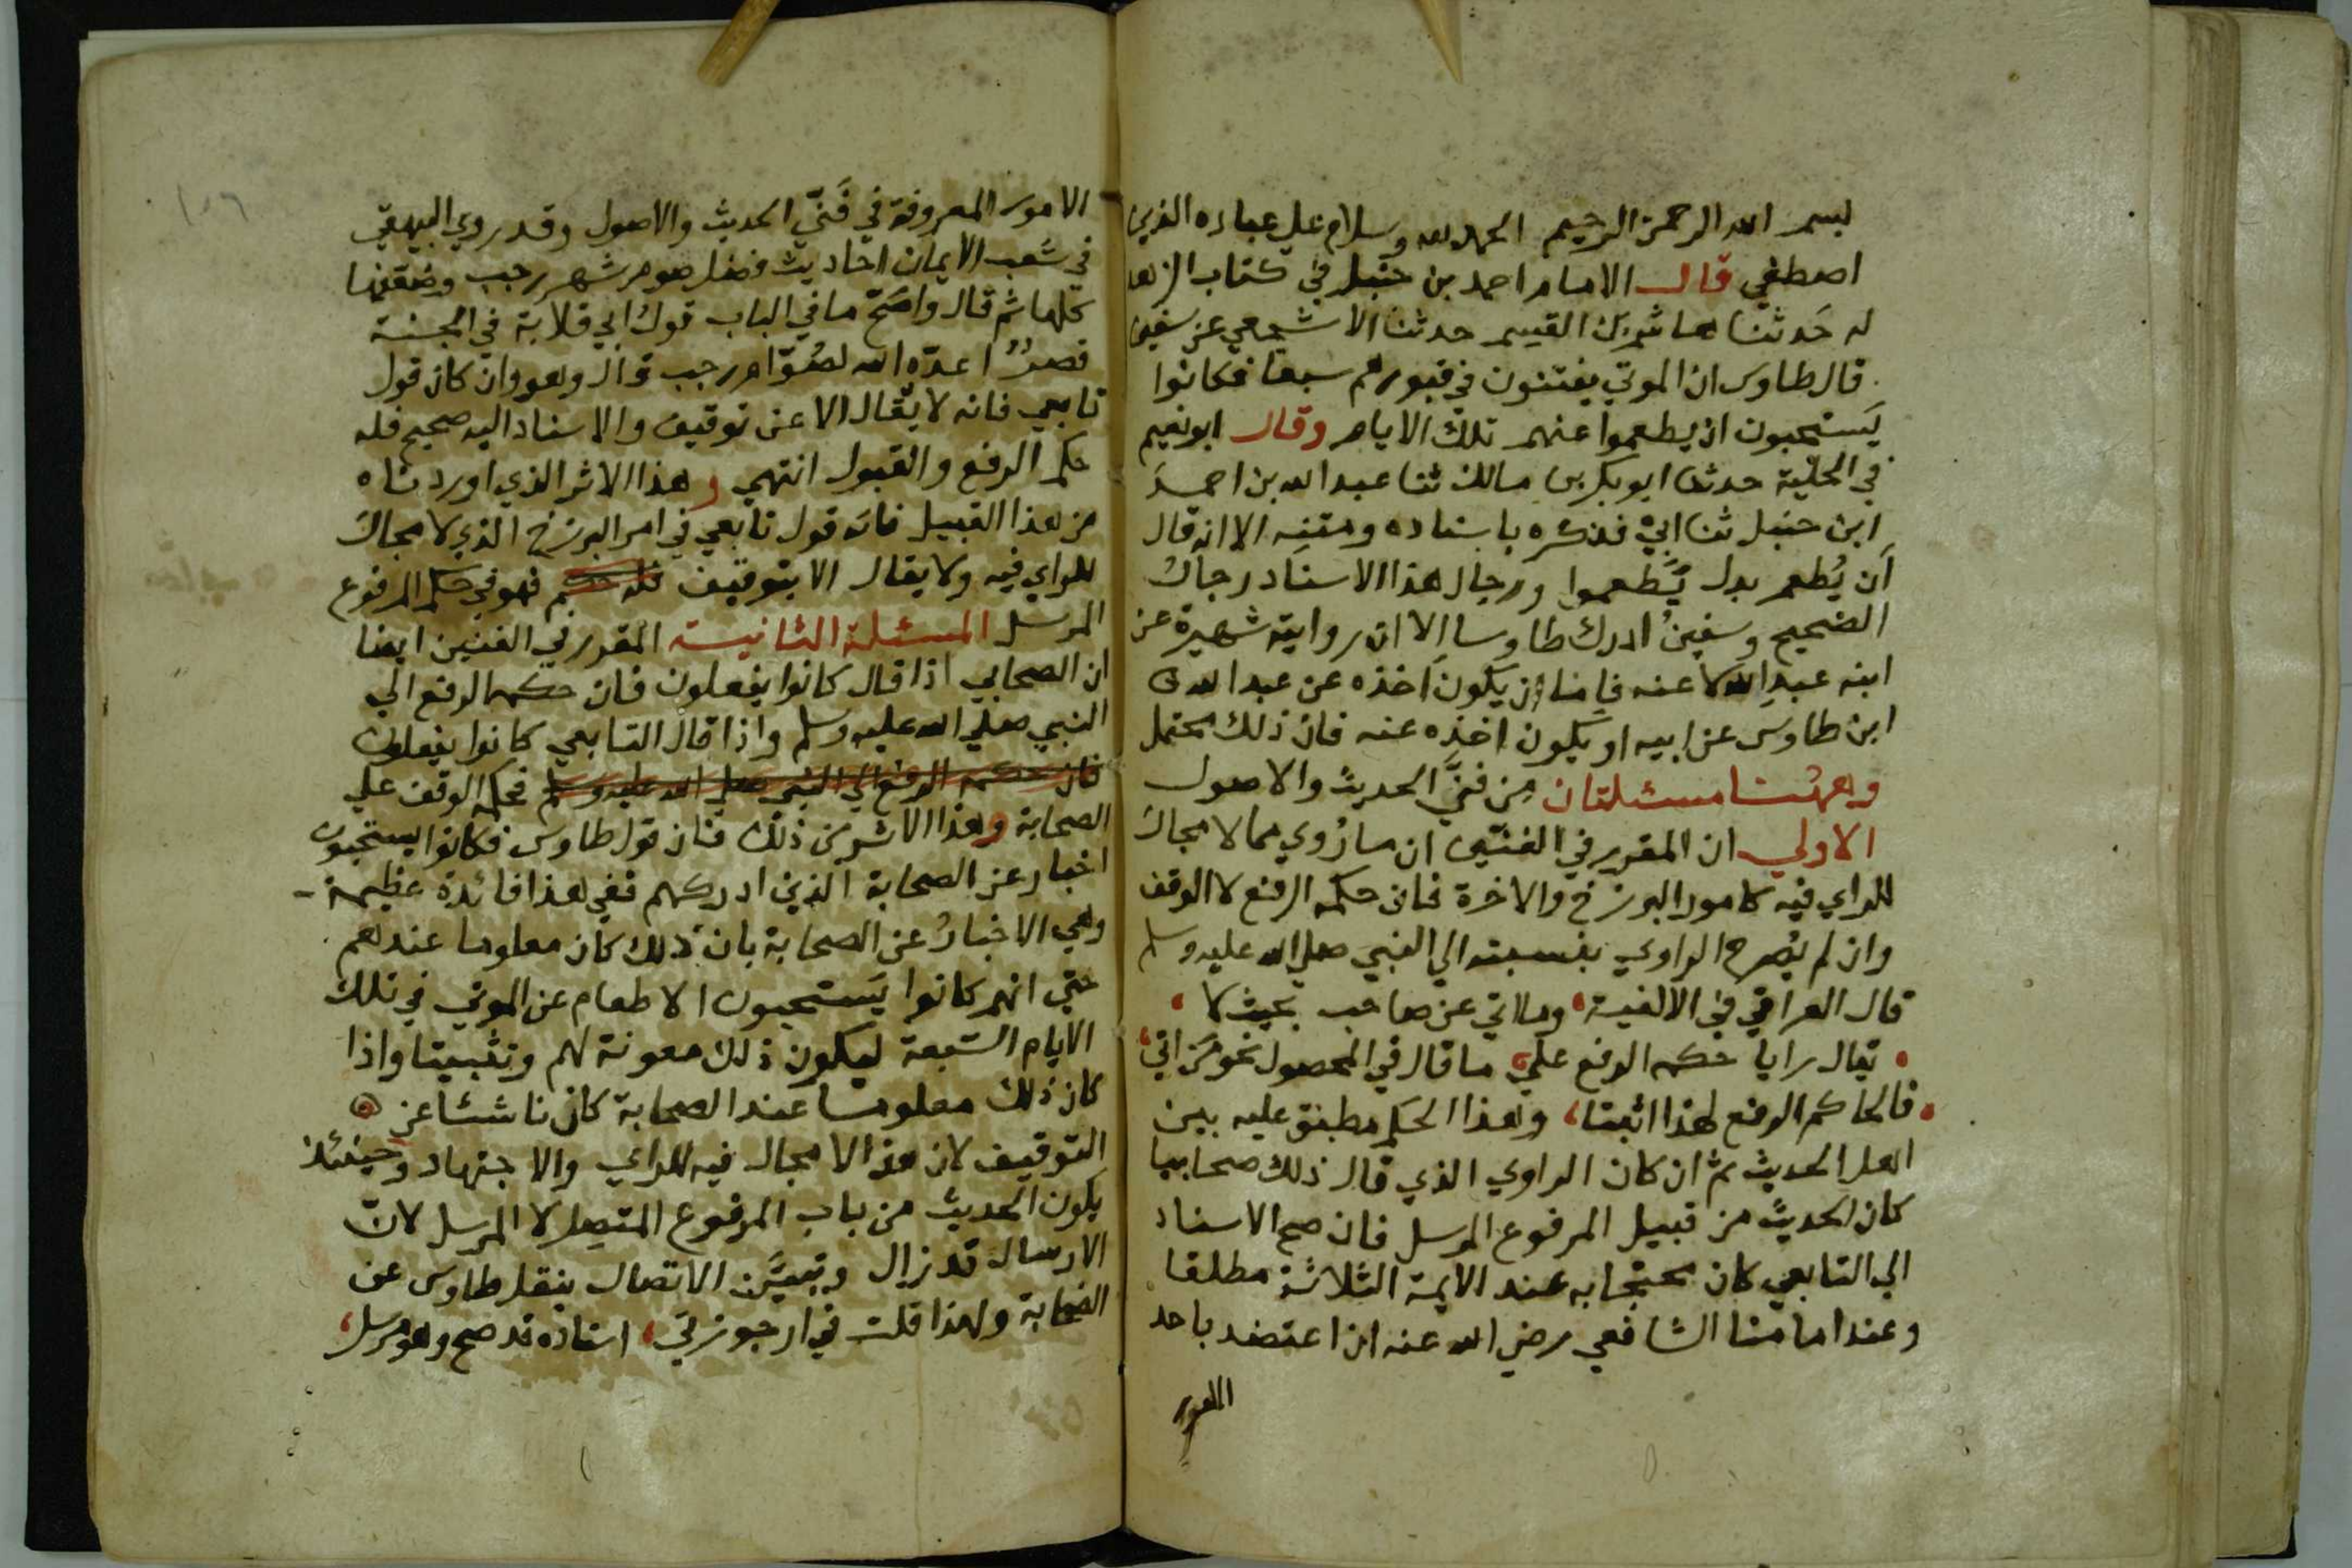 بسم الله الرحمن الرحيم الحمد لله وسلام علي عباده الذين
اصطفي قال الامام احمد بن حنبل في كتاب الزهد
له حَدثنا هاشم بن القيسم حدثنا الاشجعي عن سفين
قال طاوس ان الموتي يفتنون في قبورهم سبعا فكانوا
يَستحبون ان يطعموا عنهم تلك الايام وقال ابو نعيم
في الحلية حدثنا ابو بكر بن مالك ثنا عبد الله بن احمد
ابن حنبل ثنا ابي فذكره باسناده ومتنه الا انه قال
اَن يُطعم بدل يُطعموا ورجال هذا الاسناد رجال
الصحيح وسفين ادرك طاوسا الا ان روايته شهيرة عن
ابنه عبدِ الله لا عنه فاما ان يكون اخذه عن عبد الله
ابن طاوس عن ابيه او يكون اخذه عنه فان ذلك محتمل
وههنا مسئلتان من فنَّي الحديث والاصول
الاولي ان المقرر في الفنَّين ان ما رُوي مما لا مجال
للراي فيه كامور البرزخ والاخرة فان حكمه الرفع لا الوقف
وان لم يُصرح الراوي بنسبته الي النبي صلي الله عليه وسلم
قال العراقي في الالفية، وما اتي عن صاحب بحيث لا،
تقال رايا حكمه الرفع علي، ما قال في المحصول نحو من اتي،
فالحاكم الرفع لهذا اثبتا، وهذا الحكم مطبق عليه بين
اهل الحديث ثم ان كان الراوي الذي قال ذلك صحابيا
كان الحديث من قبيل المرفوع المرسل فان صح الاسناد
الي التابعي كان محتجا به عند الايمة الثلاثة مطلقا
وعند امامنا الشافعي رضي الله عنه اذا اعتضد باحد
الامور
١٠٦
الامور المعروفة في فَنَّي الحديث والاصول وقد روي البيهقي
في شعب الايمان احاديث فضل صوم شهر رجب وضعفها
كلها ثم قال واصح ما في الباب قول ابي قلابة في الجنة
قصرٌ اعدّه الله لصُوّام رجب قال وهو وان كان قول
تابعي فانه لا يقال الا عن توقيف والاسناد اليه صحيح فله
حكم الرفع والقبول انتهي وهذا الاثر الذي اوردناه
من هذا القبيل فانه قول تابعي في امر البرزخ الذي لا مجال
للراي فيه ولا يقال الا بتوقيف فله حكم فهو في حكم المرفوع
المرسل المسئلة الثانية المقرر في الفنين ايضا
ان الصحابي اذا قال كانوا يفعلون فان حكمه الرفع الي
النبي صلي الله عليه وسلم واذا قال التابعي كانوا يفعلون
فان حكمه الرفع الي النبي صلي الله عليه وسلم فحكمه الوقف علي
الصحابة وهذا الاثر من ذلك فان قول طاوس فكانوا يستحبون
اخبار عن الصحابة الذين ادركهم ففي هذا فائدة عظيمة
وهي الاخبارُ عن الصحابة بان ذلك كان معلوما عندهم
حتي انهم كانوا يَستحبون الاطعام عن الموتي في تلك
الايام السّبعة ليكون ذلك معونة لهم وتثبيتا واذا
كان ذلك معلوما عند الصحابة كان ناشئا عن
التوقيف لان هذا لا مجال فيه للراي والاجتهاد وحينئذ
يكون الحديث من باب المرفوع المتصل لا المرسل لانّ
الارسال قد زال وتبيَّن الاتصال بنقل طاوس عن
الصّحابة ولهذا قلت في ارجوزتي، اسناده قد صح وهو مرسل،